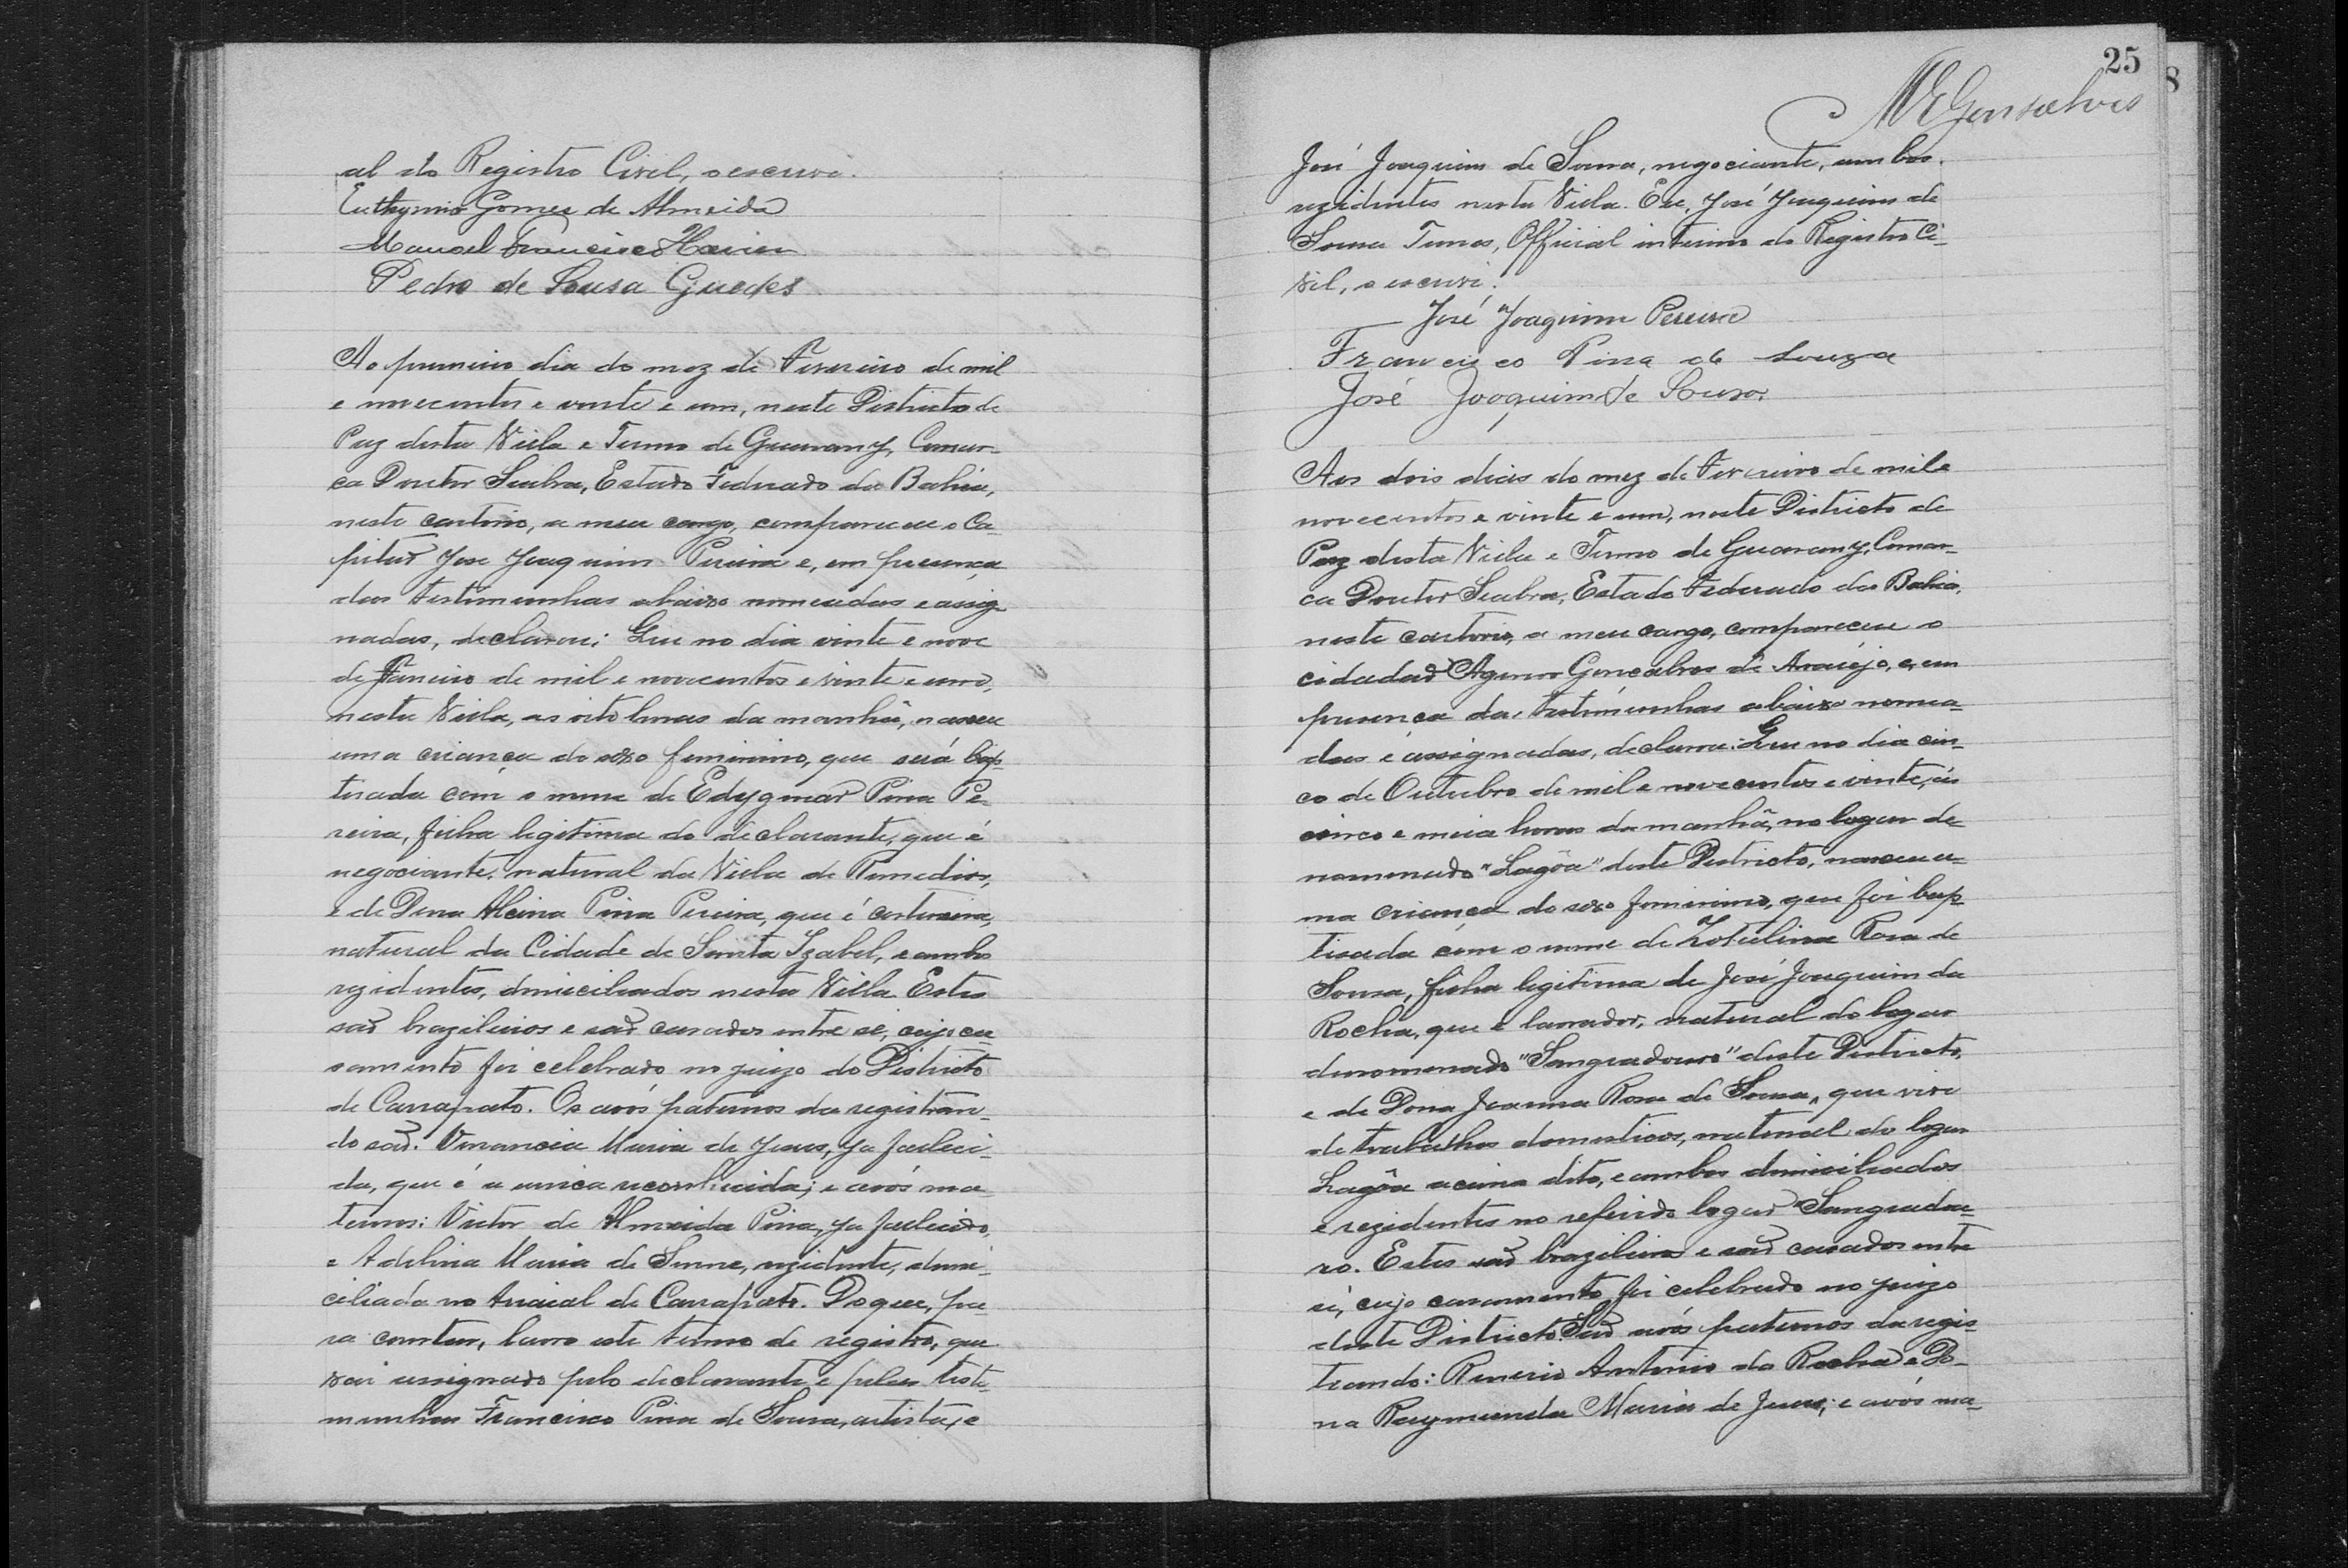 al do Registro Civil, o escrevi.
Euthymio Gomes de Almeida
Manoel Francisco Xavier
Pedro de Sousa Guedes
Ao primeiro dia do mez de Fevereiro de mil
e novecentos e vinte e um, neste Districto de
Paz desta Villa e Termo de Guarany, Comar-
ca Doutor Seabra, Estado Federado da Bahia,
neste cartorio, a meu cargo, compareceu o Ca-
pitão José Joaquim Pereira e, em presença
das testimunhas abaixo nomeadas e assig-
nadas, declarou: Que no dia vinte e nove
de Janeiro de mil e novecentos e vinte e um,
nesta Villa, as oito horas da manhã, nasceu
uma criança do sexo feminino, que será bap-
tisada com o nome de Edygmar Pina Pe-
reira, filha legitima do declarante, que é
negociante, natural da Villa de Remedios,
e de Dona Alcina Pina Pereira, que é costureira,
natural da Cidade de Santa Izabel, e ambos
rezidentes, domiciliados nesta Villa. Estes
são brazileiros e são casados entre si, cujo ca-
samento foi celebrado no juizo do Districto
de Carrapato. Os avós paternos da registran-
do são: Venancia Maria de Jesus, ja falleci-
da, que é a unica reconhecida; e avós ma-
ternos: Victor de Almeida Pina, ja fallecido,
e Adelina Maria de Sousa, rezidente, domi-
ciliada no Arraial de Carrapato. Do que, pa-
ra constar, lavro este termo de registro, que
vai assignado pelo declarante e pelas teste-
munhas Francisco Pina de Sousa, artista, e
25
8
M E Gonsalves
José Joaquim de Sousa, negociante, ambos
rezidentes nesta Villa. Eu, José Joaquim de
Sousa Tunes, Official interino do Registro Ci-
vil, o escrevi.
José Joaquim Pereira
Francisco Pina de Souza
José Joaquim de Souza.
Aos dois dias do mez de Fevereiro de mil e
novecentos e vinte e um, neste Districto de
Paz desta Villa e Termo de Guarany, Comar-
ca Doutor Seabra, Estado Federado da Bahia,
neste cartorio, a meu cargo, compareceu o
cidadão Agenor Gonçalves de Araújo, e, em
presença das testimunhas abaixo nomea-
das e assignadas, declarou: Que no dia cin-
co de Outubro de mil e novecentos e vinte, ás
cinco e meia horas da manhã, no logar de-
nominado "Lagôa" deste Districto, nasceu u-
ma criança do sexo feminino, que foi bap-
tisada com o nome de Zotulina Rosa de
Sousa, filha legitima de José Joaquim da
Rocha, que é lavrador, natural do logar
denomenado "Sangradouro" deste Districto,
e de Dona Joanna Rosa de Sousa, que vive
de trabalhos domesticos, natural do logar
Lagôa acima dito, e ambos domiciliados
e rezidentes no referido logar Sangradou-
ro. Estes são brazileiros e são casados entre
si, cujo casamento foi celebrado no juizo
deste Districto. São avós paternos da regis-
trando: Renerio Antonio da Rocha e Do-
na Raymunda Maria de Jesus; e avós ma-